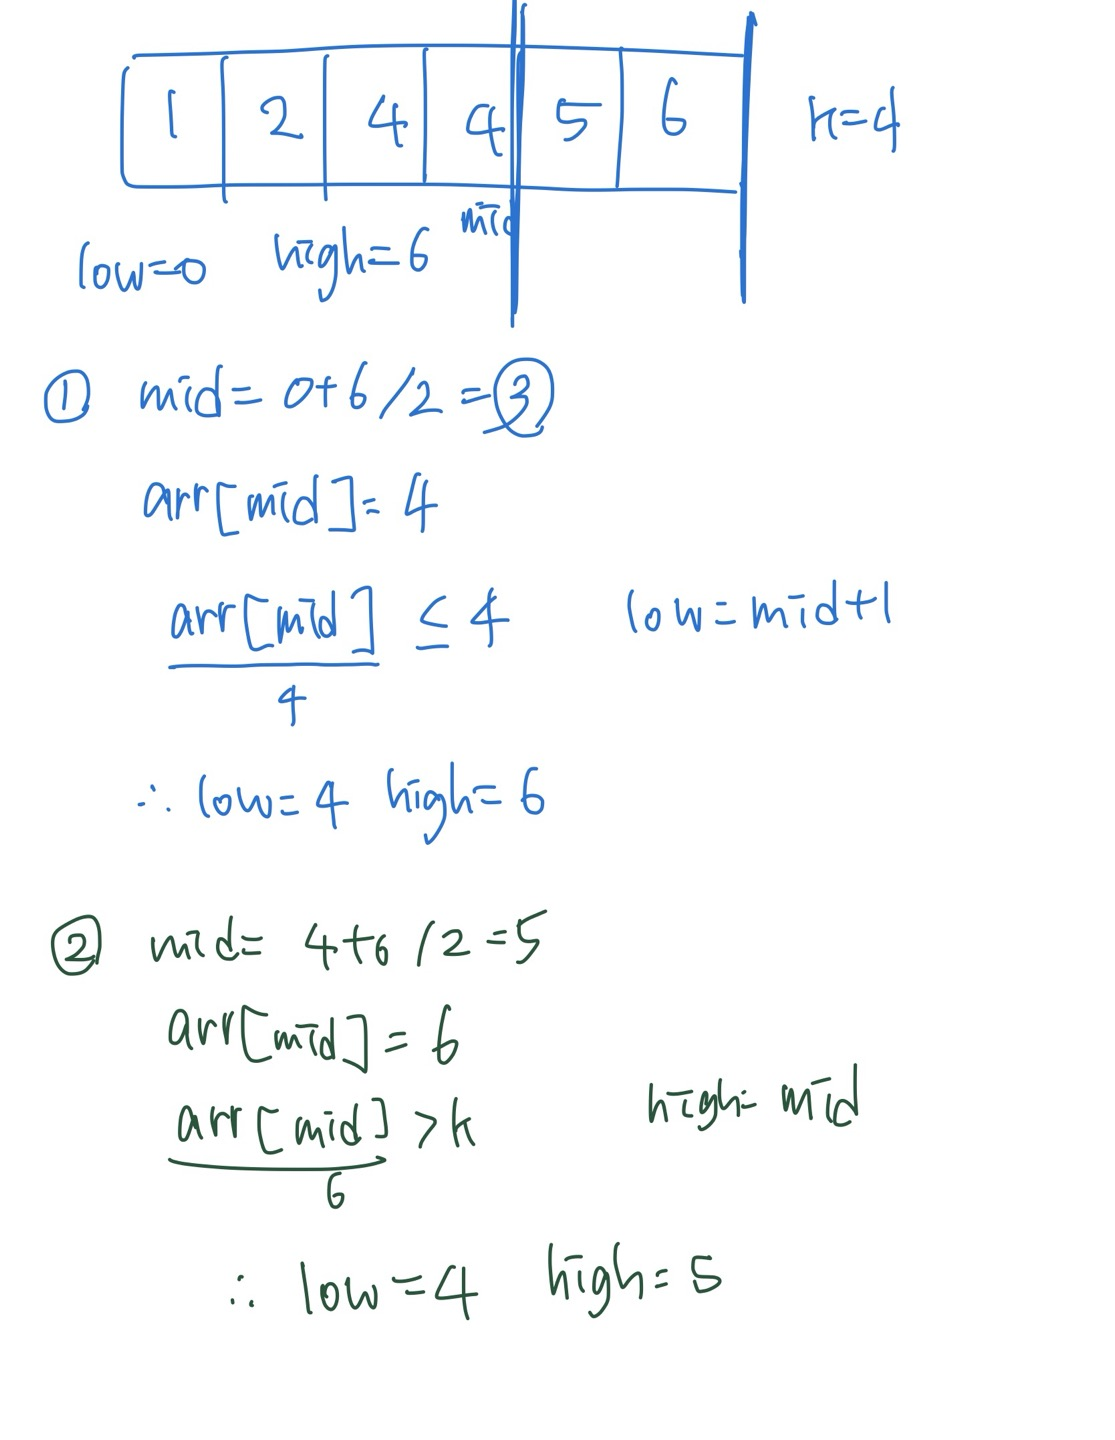 1 2 4 4 5 6 k=4
mid
low=0 high=6
① mid= 0+6/2=③
arr[mid]=4
arr[mid] ≤4 low=mid+1
4
∴ low=4 high=6
② mid= 4+6/2=5
arr[mid]=6
arr[mid]>k high=mid
6
∴ low=4 high=5